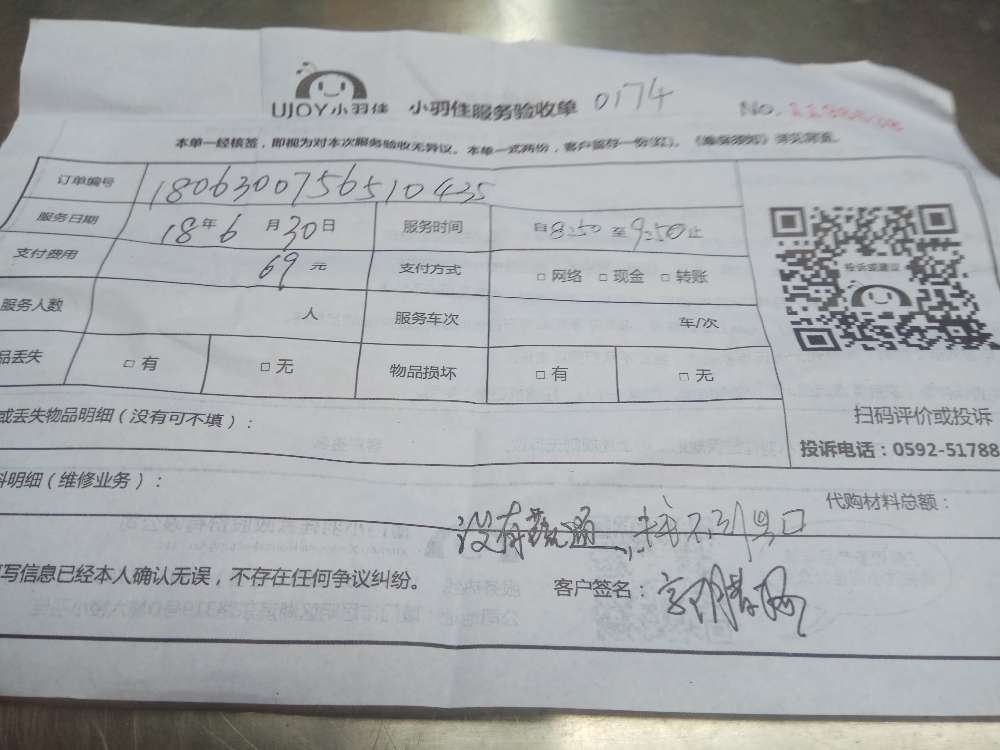 UJOY小羽佳 小羽佳服务验收单 0174 No.
本单一经核签，即视为对本次服务验收无异议。本单一式两份，客户留存一份(红)。
订单编号 18063007565 10435
服务日期 18年 6 月 30日 服务时间 自8:50 至 9:50止
支付费用 69 元 支付方式 □ 网络 □ 现金 □ 转账
服务人数 人 服务车次 车/次
品丢失 □ 有 □ 无 物品损坏 □ 有 □ 无
投诉或建议
扫码评价或投诉
投诉电话：0592-51788
或丢失物品明细（没有可不填）：
料明细（维修业务）： 代购材料总额：
没有疏通 找不到 口
写信息已经本人确认无误，不存在任何争议纠纷。 客户签名：